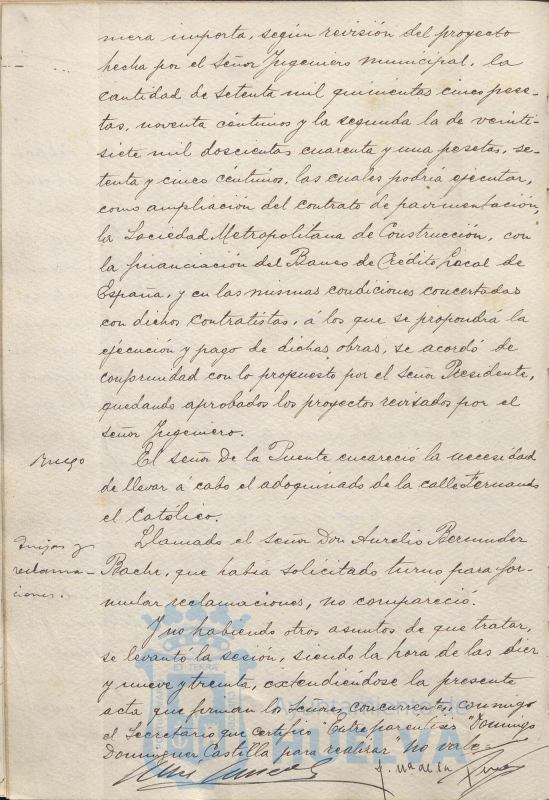 mera importa, según revisión del proyecto
hecha por el señor Ingeniero municipal, la
cantidad de setenta mil quinientas cinco pese-
tas, noventa céntimos y la segunda la de veinti-
siete mil doscientas cuarenta y una pesetas, se-
tenta y cinco céntimos, las cuales podría ejecutar,
como ampliación del contrato de pavimentación,
la Sociedad Metropolitana de Construcción, con
la financiación del Banco de Crédito Local de
España, y en las mismas condiciones concertadas
con dichos contratistas, á los que se propondrá la
ejecución y pago de dichas obras, se acordó de
conformidad con lo propuesto por el señor Presidente,
quedando aprobados los proyectos revisados por el
señor Ingeniero.
Ruego
El señor De la Puente encareció la necesidad
de llevar á cabo el adoquinado de la calle Fernando
el Católico.
Quejas y
reclama-
ciones.
Llamado el señor Don Aurelio Bermudez
que había solicitado turno para for-
mular reclamaciones, no compareció.
Y no habiendo otros asuntos de que tratar,
se levantó la sesión, siendo la hora de las diez
y nueve y treinta, extendiéndose la presente
acta que firman los señores concurrentes, conmigo
el Secretario que certifico "Entre parentisis" "Domingo
Dominguez Castellá para realizar" no vale=
HUELVA